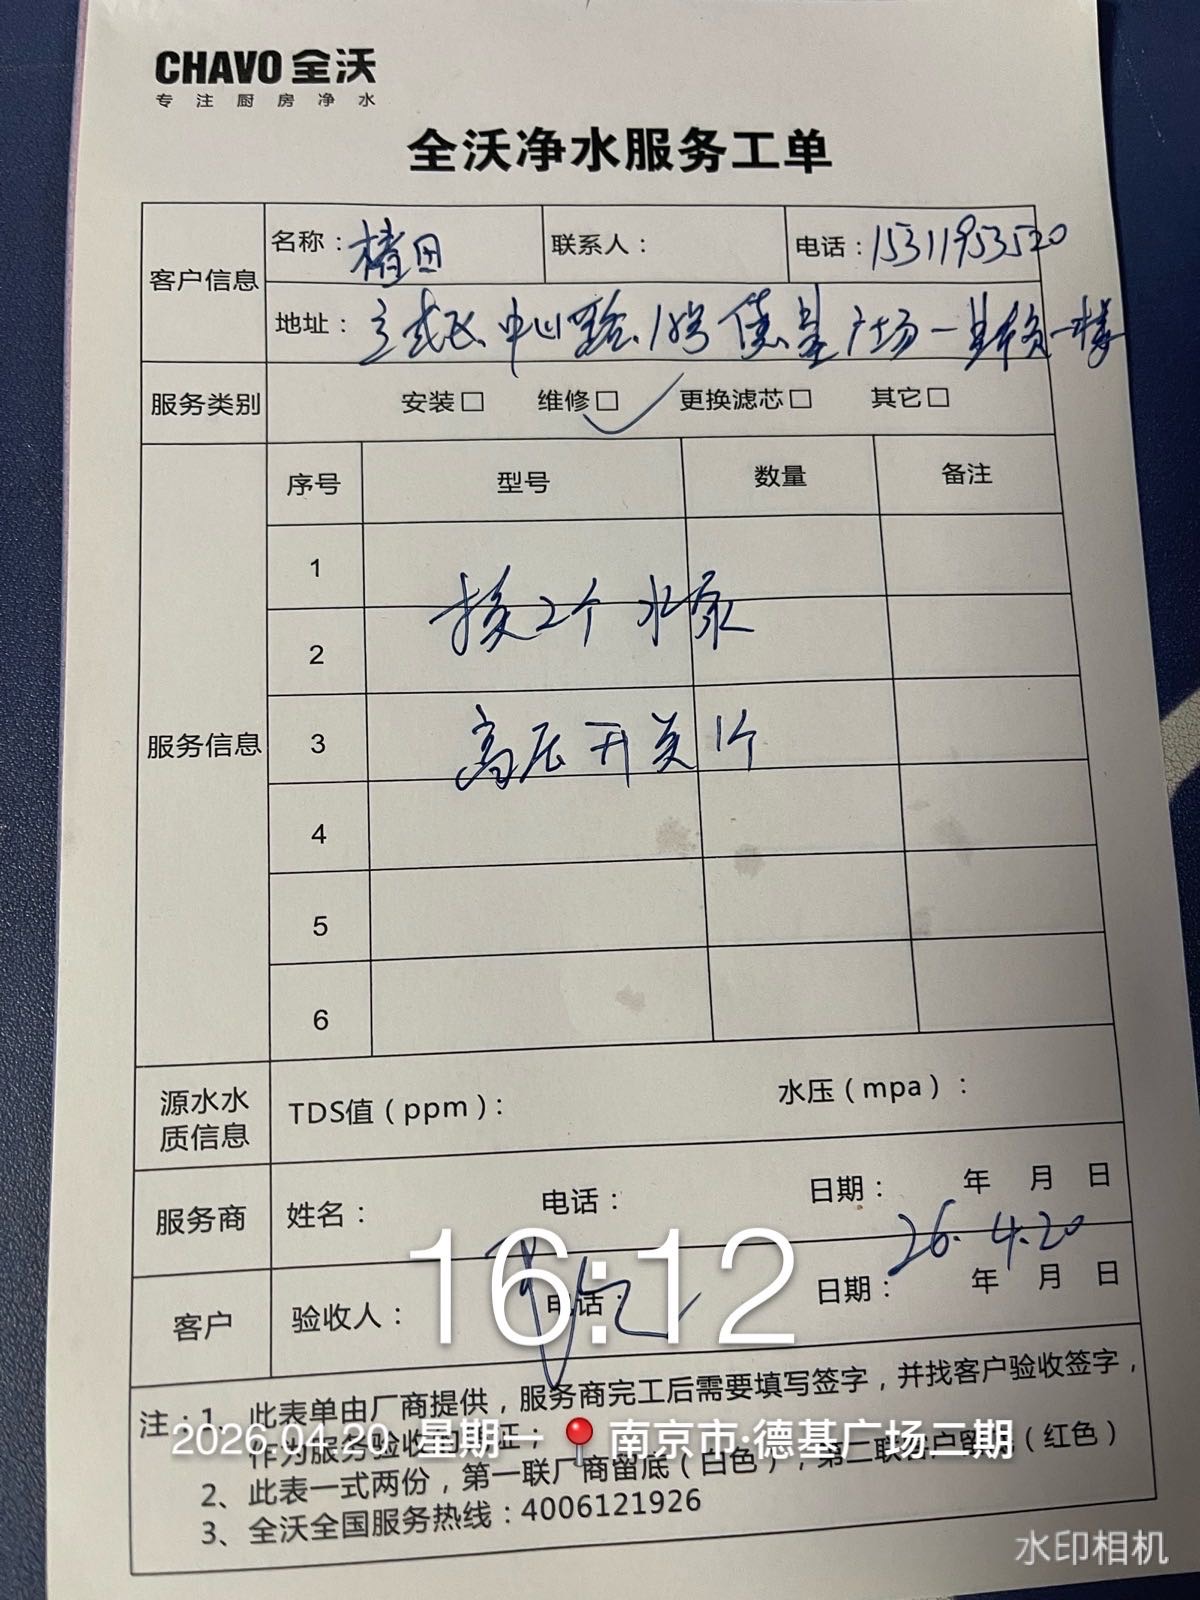 CHAVO 全沃
专注厨房净水
全沃净水服务工单
客户信息 名称： 楮田 联系人： 电话：15311953520
地址：玄武区中心路18号德基广场一期负一楼
服务类别 安装□ 维修□ ✓ 更换滤芯□ 其它□
服务信息 序号 型号 数量 备注
1
换2个水泵
2
3 高压开关1个
4
5
6
源水水质信息 TDS值（ppm）： 水压（mpa）：
服务商 姓名： 电话： 日期： 年 月 日
26.4.20
客户 验收人： 电话： 日期： 年 月 日
16:12
注：1、此表单由厂商提供，服务商完工后需要填写签字，并找客户验收签字，
作为服务验收的凭证；
2026.04.20 星期一 南京市·德基广场二期
2、此表一式两份，第一联厂商留底（白色），第二联客户留底（红色）
3、全沃全国服务热线：4006121926
水印相机